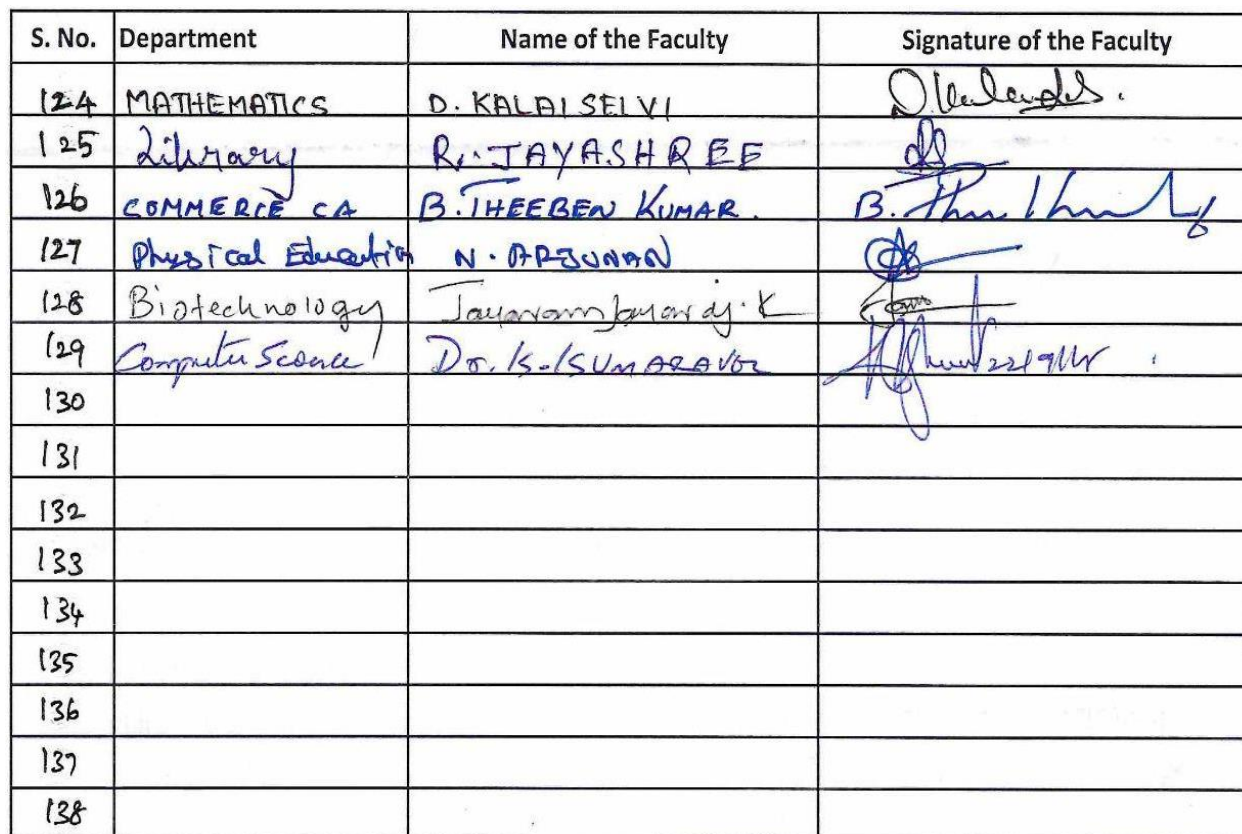 S. No. Department Name of the Faculty Signature of the Faculty
124 MATHEMATICS D. KALAISELVI
125 Library R. JAYASHREE
126 COMMERCE CA B. THEEBEN KUMAR.
127 Physical Education N. ARJUNAN
128 Biotechnology Jayaram Jayaraj. K
129 Computer Science Dr. K. KUMARAVEL
130
131
132
133
134
135
136
137
138